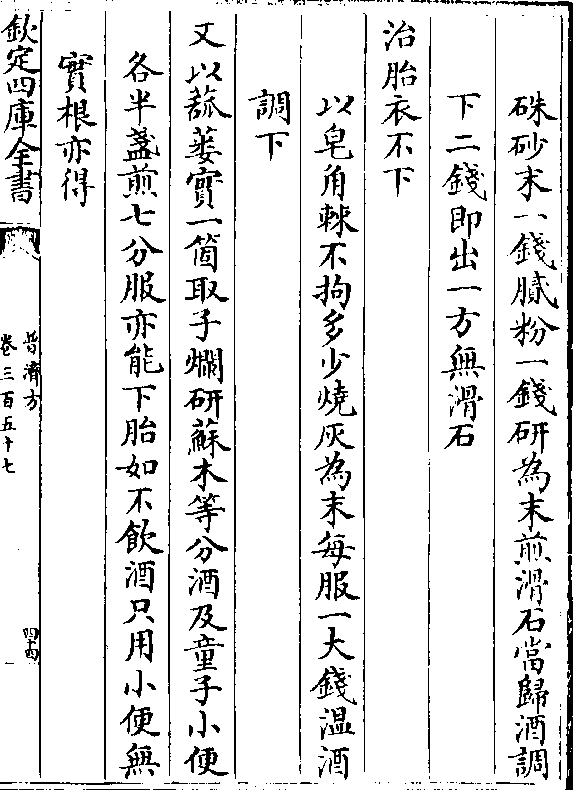 硃砂末一錢膩粉一錢研為末煎滑石當歸酒調
下二錢即出一方無滑石
治胎衣不下
以皂角棘不拘多少燒灰為末每服一大錢温酒
調下
又以菰蔞實一箇取子爛研蘇木等分酒及童子小便
各半盞煎七分服亦能下胎如不飲酒只用小便無
實根亦得
欽定四庫全書
普濟方
卷三百五十七
四十四